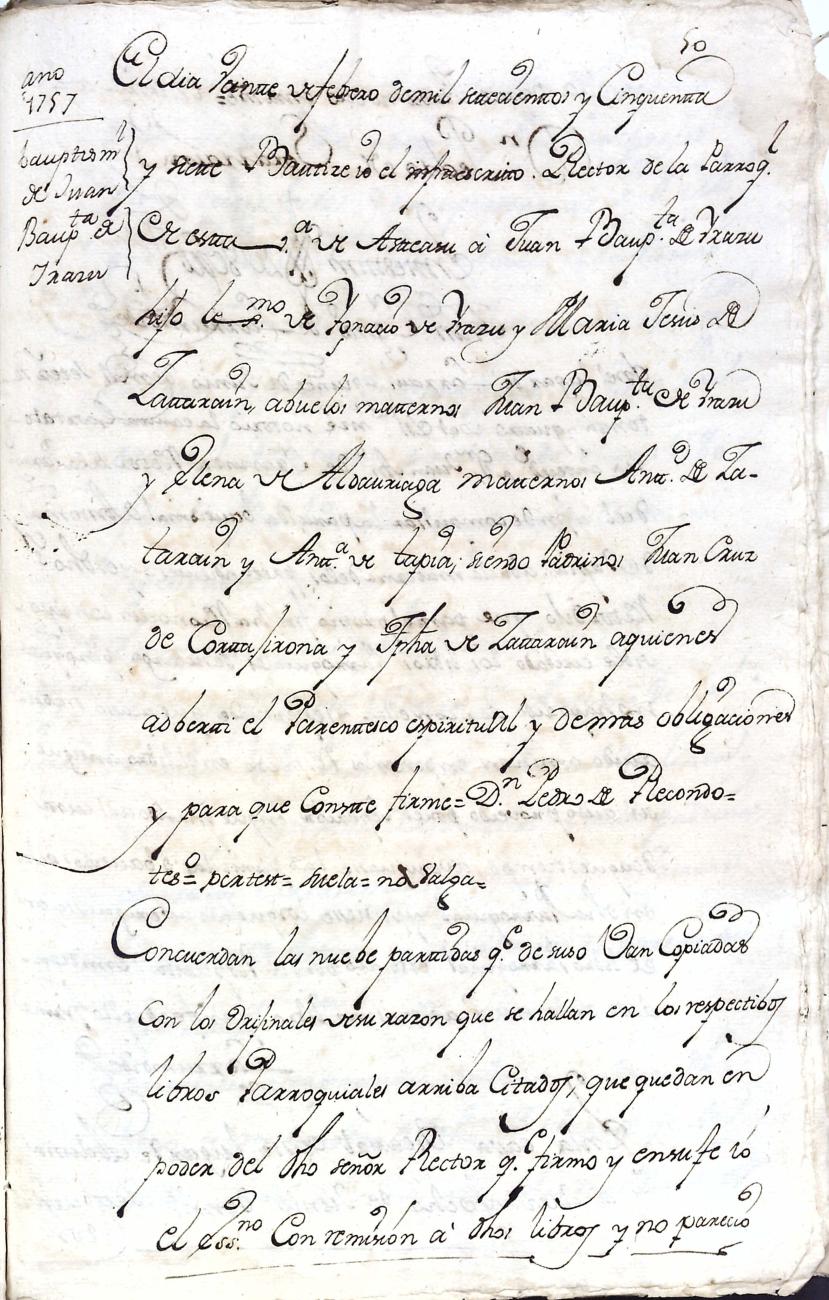 50
año
1757
bauptism.l
de Juan
Baup.ta de
Yrazu
El dia Vainte de febrero de mil setecientos y Cinquenta
y siete Bautize io el infraescrito Rector de la Parroq.l
de esta v.a de Asteasu à Juan Baup.ta de Yrazu
hijo le.mo de Ygnacio de Yrazu y Maria Jesus de
Zattarain, abuelos matternos Juan Baup.ta de Yrazu
y Elena de Aldauriaga matternos Antt.o de Za-
tarain y Antt.a de tapia; siendo Padrinos Juan Cruz
de Corttasirona y Jpha de Zattarain aquienes
adberti el Parenttesco espirituàl y demas obligaciones
y para que Constte firme= D.n Pedro de Recondo=
tes.o= pertest= suela= no Valga=
Concuerdan las nuebe parttidas q.e de suso Van Copiadas
Con los Orijinales de su razon que se hallan en los respectibos
libros Parroquiales arriba Citados; que quedan en
poder del dho señor Rector q.e firmo y ensufe io
el Ess.no Con remision à dhos libros y no parecio